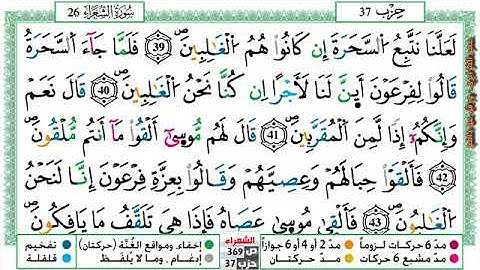 سُورَةُ الشُّعَرَاءِ 26
حِزْب 37
لَعَلَّنَا نَتَّبِعُ السَّحَرَةَ إِن كَانُوا هُمُ الْغَٰلِبِينَ 39 فَلَمَّا جَآءَ السَّحَرَةُ
قَالُوا لِفِرْعَوْنَ أَيِنَّ لَنَا لَأَجْرًا اِن كُنَّا نَحْنُ الْغَٰلِبِينَ 40 قَالَ نَعَمْ
وَإِنَّكُمُۥٓ إِذًا لَّمِنَ الْمُقَرَّبِينَ 41 قَالَ لَهُم مُّوسِيٰٓ أَلْقُوا مَآ أَنتُم مُّلْقُونَ
42 فَأَلْقَوْا حِبَالَهُمْ وَعِصِيَّهُمْ وَقَالُوا بِعِزَّةِ فِرْعَوْنَ إِنَّا لَنَحْنُ
الْغَٰلِبُونَ 43 فَأَلْقَىٰ مُوسِيٰ عَصَاهُ فَإِذَا هِيَ تَلَقَّفُ مَا يَافِكُونَ
مدّ 6 حركات لزوماً مدّ 2 أو 4 أو 6 جوازاً إخفاء، ومواقع الغُنَّة (حركتان) تفخيم
مدّ مشبع 6 حركات مدّ حركتان إدغام، وما لا يُلفَظ قلقلة
الشعراء
ص 369
حزب 37